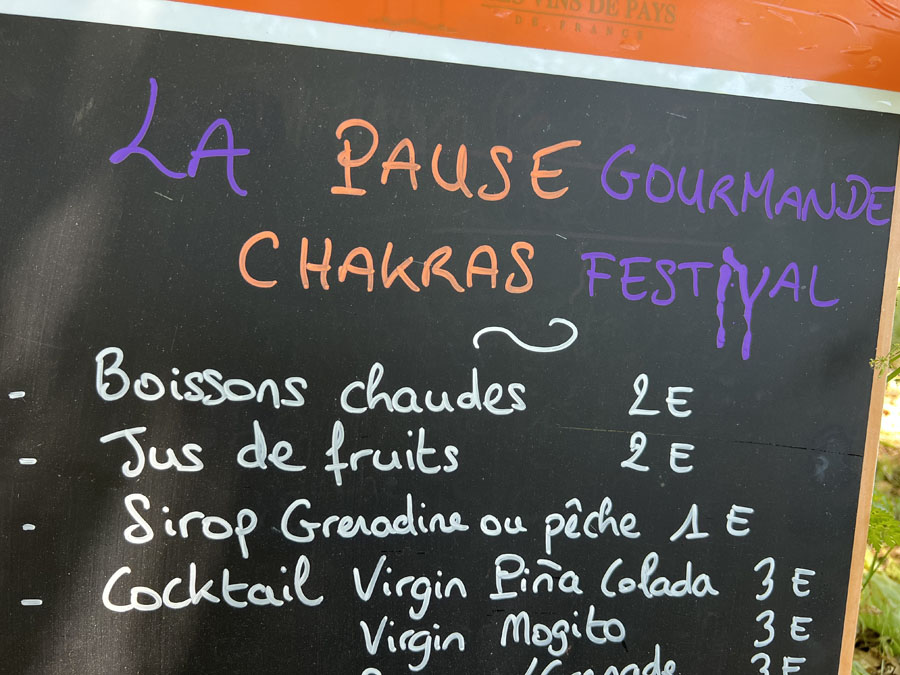 VINS DE PAYS
DE FRANCE
LA PAUSE GOURMANDE
CHAKRAS FESTIVAL
- Boissons chaudes 2 E
- Jus de fruits 2 E
- Sirop Grenadine ou pêche 1 E
- Cocktail Virgin Piña Colada 3 E
Virgin Mogito 3 E
3 E